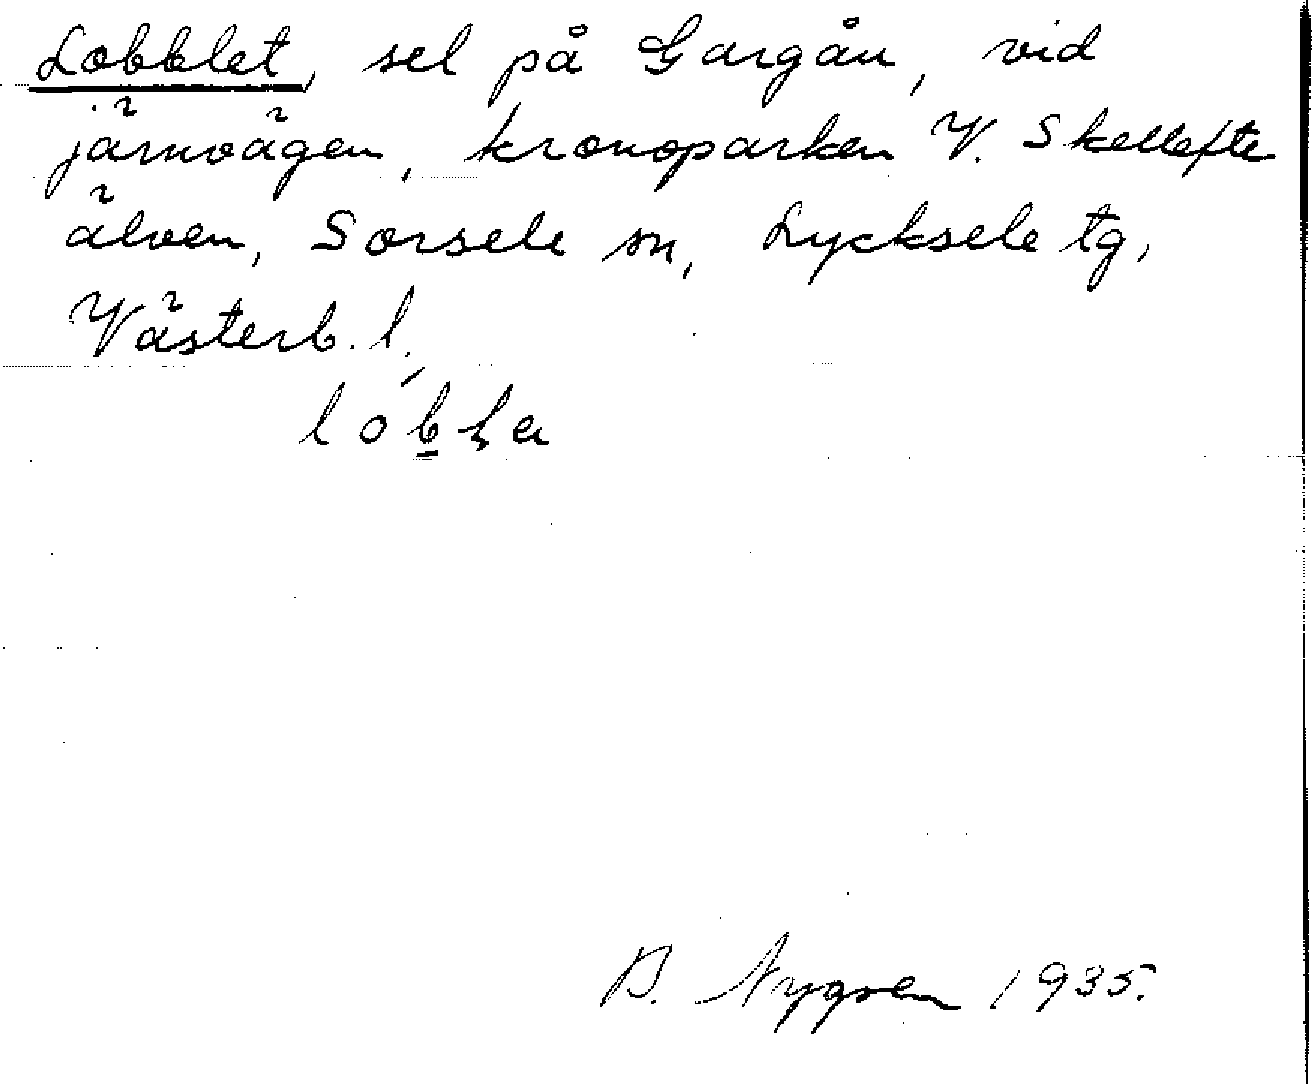 Lobblet, sel på Gargån, vid
järnvägen, kronoparken V. Skellefte
älven, Sorsele sn, Lycksele tg,
Västerb. l.
B. Nygren 1935.